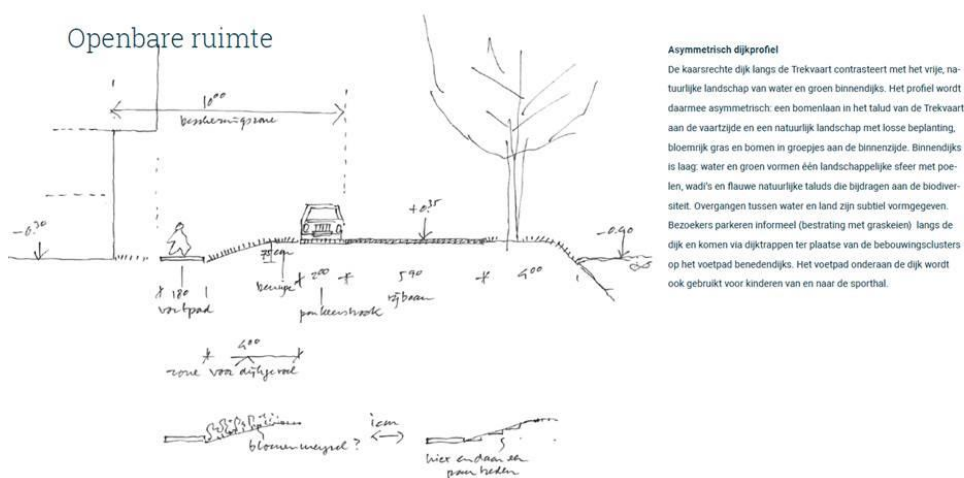 Openbare ruimte
10⁰⁰
beschermingszone
-0.30
+0.35
-0.40
180
voetpad
75 cm
2⁰⁰
parkeerstrook
5⁹⁰
rijbaan
4⁰⁰
4⁰⁰
zone voor dijkgevoel
bloemenmengsel?
icm
hier en daar een
paar treden
Asymmetrisch dijkprofiel
De kaarsrechte dijk langs de Trekvaart contrasteert met het vrije, na-
tuurlijke landschap van water en groen binnendijks. Het profiel wordt
daarmee asymmetrisch: een bomenlaan in het talud van de Trekvaart
aan de vaartzijde en een natuurlijk landschap met losse beplanting,
bloemrijk gras en bomen in groepjes aan de binnenzijde. Binnendijks
is laag: water en groen vormen één landschappelijke sfeer met poe-
len, wadi's en flauwe natuurlijke taluds die bijdragen aan de biodiver-
siteit. Overgangen tussen water en land zijn subtiel vormgegeven.
Bezoekers parkeren informeel (bestrating met graskeien) langs de
dijk en komen via dijktrappen ter plaatse van de bebouwingsclusters
op het voetpad benedendijks. Het voetpad onderaan de dijk wordt
ook gebruikt voor kinderen van en naar de sporthal.